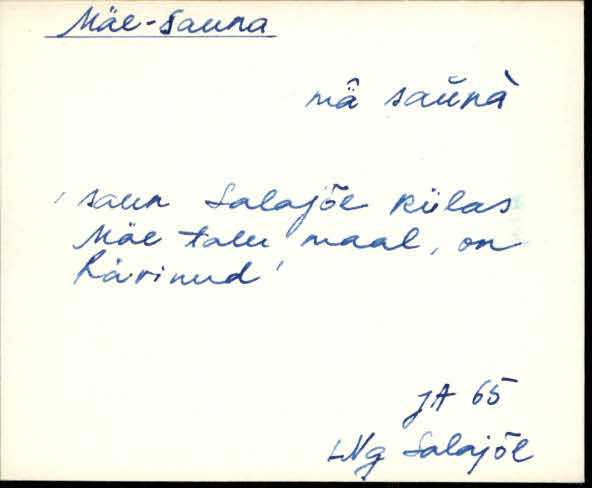 Mäe-Sauna
mǟ saùnà
' saun Salajõe külas
Mäe talu maal, on
hävinud '
JA 65
LNg Salajõe